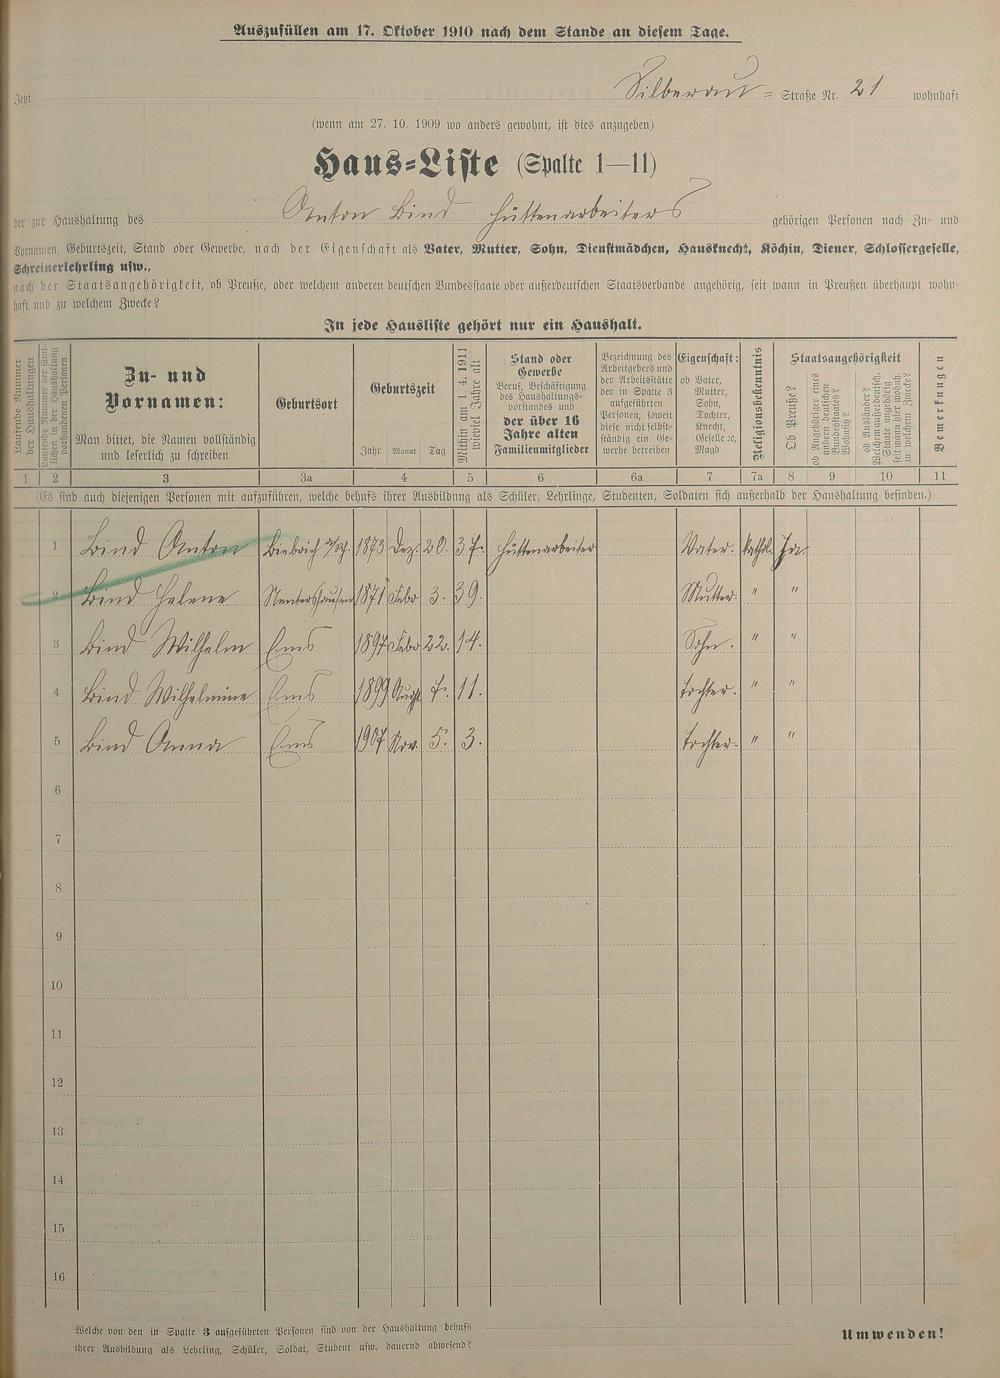 Auszufüllen am 17. Oktober 1910 nach dem Stande an diesem Tage.
Jetzt Silberau = Straße Nr. 21 wohnhaft
(wenn am 27. 10. 1909 wo anders gewohnt, ist dies anzugeben)
Haus=Liste (Spalte 1—11)
der zur Haushaltung des Anton Bind Hüttenarbeiters gehörigen Personen nach Zu- und
Vornamen, Geburtszeit, Stand oder Gewerbe, nach der Eigenschaft als Vater, Mutter, Sohn, Dienstmädchen, Hausknecht, Köchin, Diener, Schlossergeselle,
Schreinerlehrling usw.,
nach der Staatsangehörigkeit, ob Preuße, oder welchem anderen deutschen Bundesstaate oder außerdeutschen Staatsverbande angehörig, seit wann in Preußen überhaupt wohn-
haft und zu welchem Zwecke?
In jede Hausliste gehört nur ein Haushalt.
Laufende Nummer der Haushaltungen
Laufende Nummer der sämtlichen in der Haushaltung vorhandenen Personen
Zu- und
Vornamen:
Man bittet, die Namen vollständig
und leserlich zu schreiben
Geburtsort
Geburtszeit
Jahr Monat Tag
Mithin am 1. 4. 1911 wieviel Jahre alt
Stand oder
Gewerbe
Beruf, Beschäftigung
des Haushaltungs-
vorstandes und
der über 16
Jahre alten
Familienmitglieder
Bezeichnung des
Arbeitgebers und
der Arbeitsstätte
der in Spalte 3
aufgeführten
Personen, soweit
diese nicht selbst-
ständig ein Ge-
werbe betreiben
Eigenschaft:
ob Vater,
Mutter,
Sohn,
Tochter,
Knecht,
Geselle ꝛc,
Magd
Religionsbekenntnis
Staatsangehörigkeit
Ob Preuße?
ob Angehöriger eines andern deutschen Bundesstaates? Wohnsitz?
ob Ausländer? Welchem außerdeutsch. Staate angehörig seit wann hier wohnh. zu welchem Zwecke?
Bemerkungen
1 2 3 3a 4 5 6 6a 7 7a 8 9 10 11
(Es sind auch diejenigen Personen mit aufzuführen, welche behufs ihrer Ausbildung als Schüler, Lehrlinge, Studenten, Soldaten sich außerhalb der Haushaltung befinden.)
1 Bind Anton Biebrich 1873 Dez. 20. 37. Hüttenarbeiter Vater. kathol. Ja
2 Bind Helene Nentershausen 1871 Febr 3. 39. Mutter. " "
3 Bind Wilhelm Ems 1897 Febr 22. 14. Sohn. " "
4 Bind Wilhelmine Ems 1899 Augst 7. 11. Tochter. " "
5 Bind Anna Ems 1907 Nov. 5. 3. Tochter. " "
6
7
8
9
10
11
12
13
14
15
16
Welche von den in Spalte 3 aufgeführten Personen sind von der Haushaltung behufs
ihrer Ausbildung als Lehrling, Schüler, Soldat, Student usw. dauernd abwesend?
Umwenden!